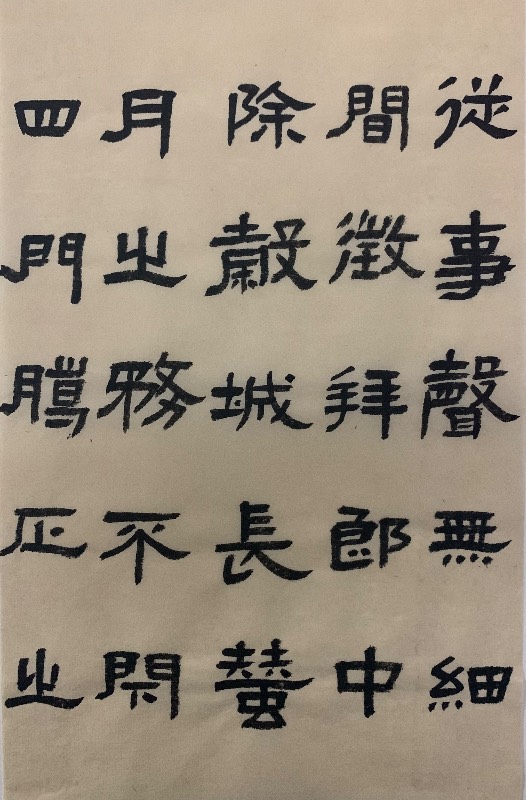 從事聲無細
間徵拜郎中
除穀城長蠶
月之務不閉
四門騰正之